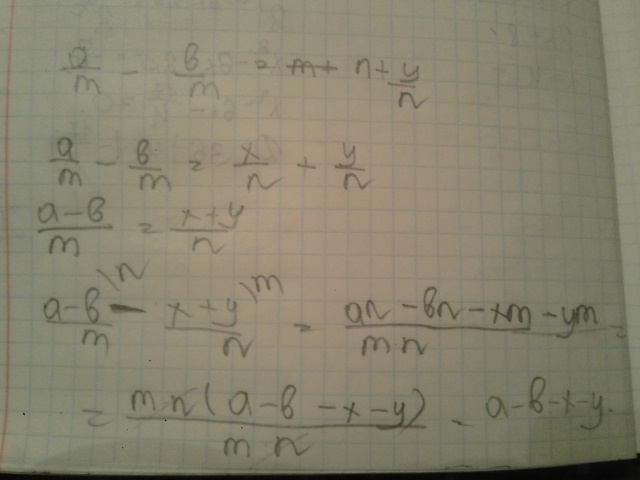 a/m - в/m = m + n + y/n
a/m - в/m = x/n + y/n
a-в/m = x+y/n
a-в/m \n - x+y/n \m = an-вn-xm-ym/mn =
= mn(a-в-x-y)/mn - a-в-x-y.